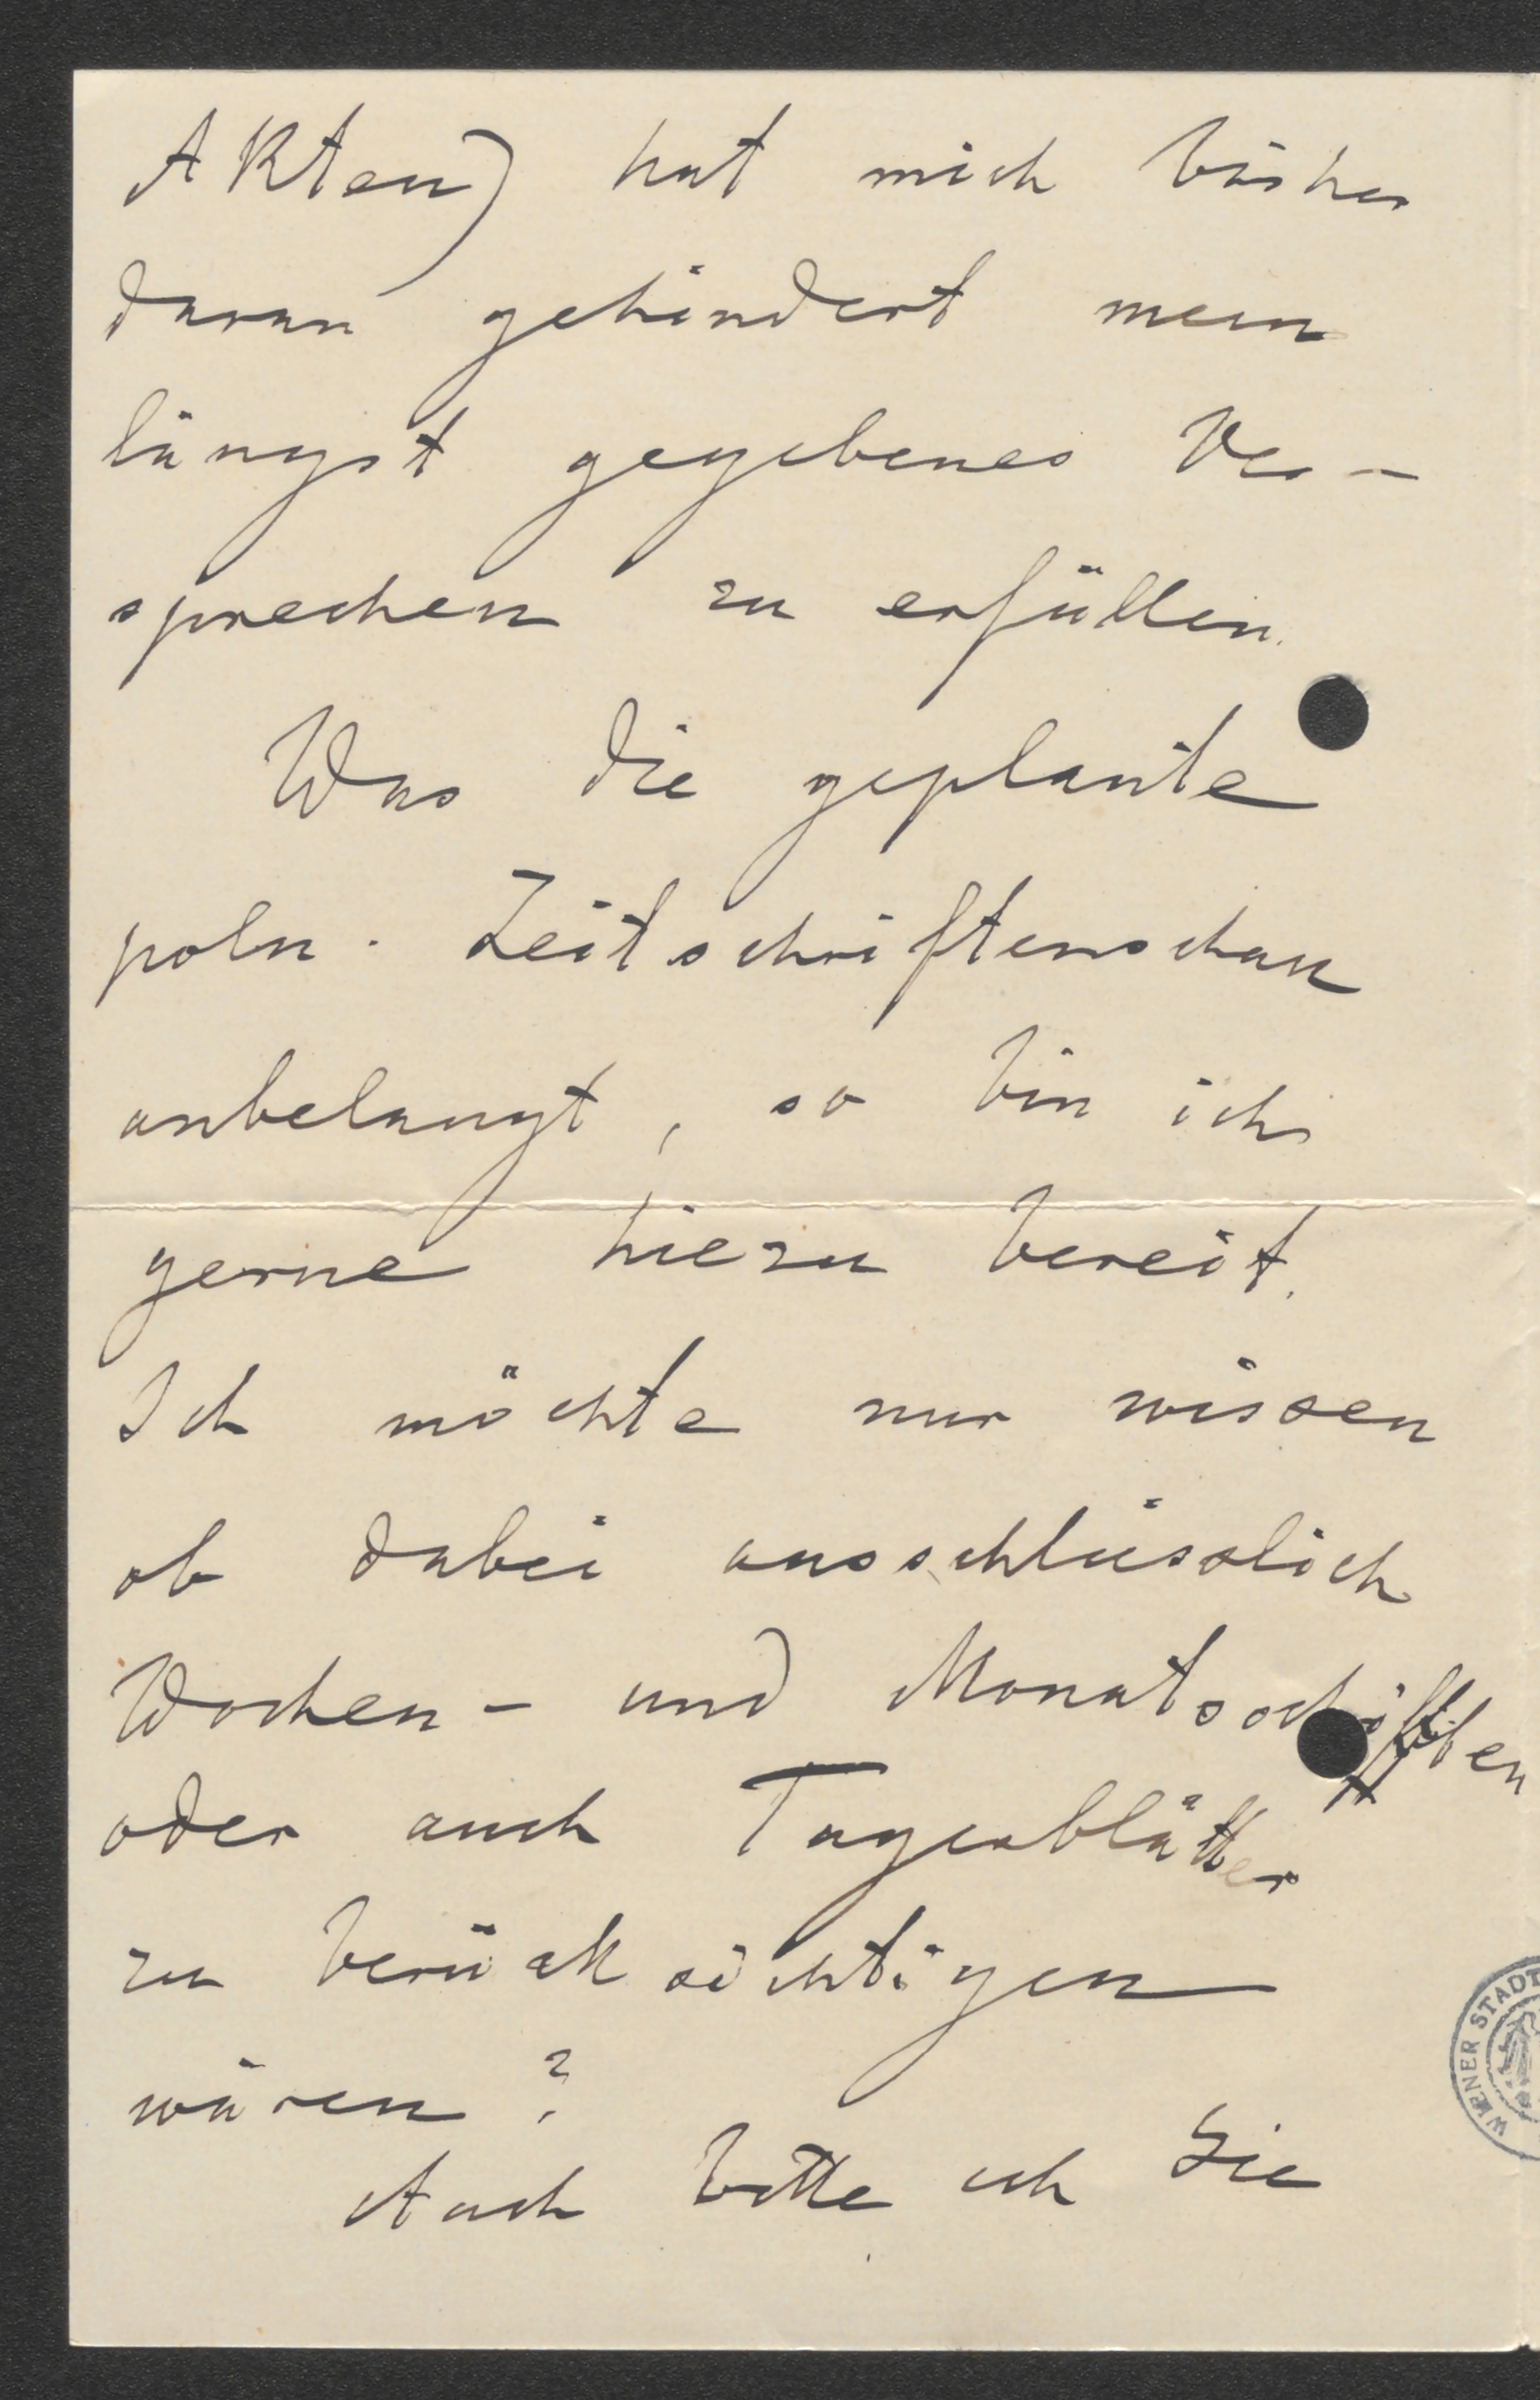 Akten) hat mich bisher
daran gehindert mein
längst gegebenes Ver-
sprechen zu erfüllen.
Was die geplante
poln. Zeitschriftenschau
anbelangt, so bin ich
gerne hiezu bereit.
Ich möchte nur wissen
ob dabei ausschliesslich
Wochen- und Monatsschriften
oder auch Tagesblätter
zu berücksichtigen
wären?
Auch bitte ich Sie
WIENER STADT